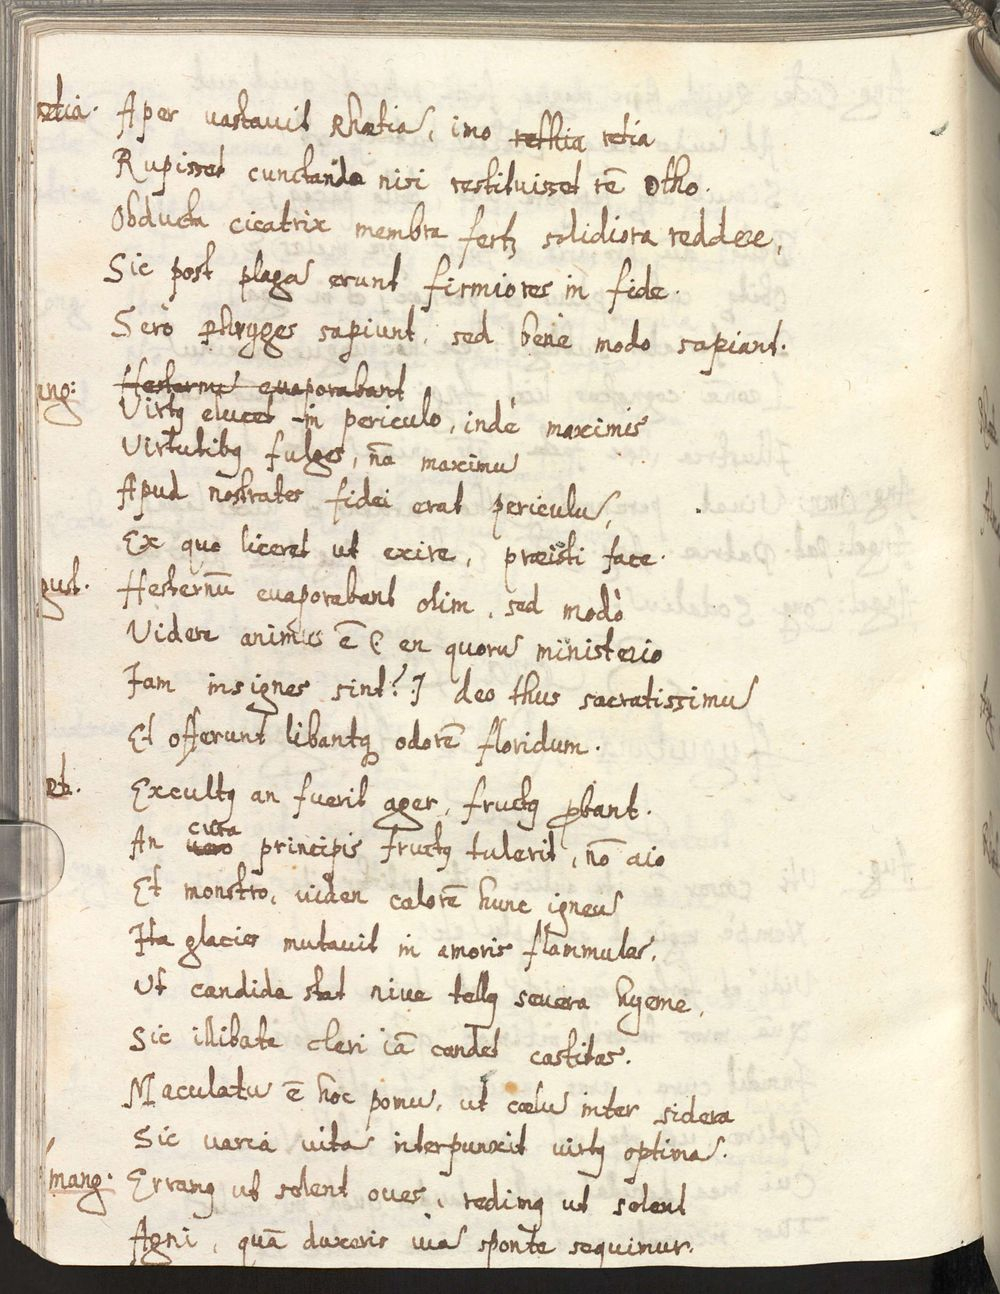 retia. Aper vastavit Rhætia, imo rethia retia
Rupisset cunctanda nisi restituisset rē Otho.
Obducta cicatrix membra fertq solidiora reddere,
Sic post plagas erunt firmiores in fide.
Serò phryges sapiunt, sed bene modo sapiant.
ang: Hesternu evaporabant
Virtq elucet in periculo, indè maximis
Virtutibq fulges, nā maximu
Apud nostrates fidei erat periculu,
Ex quo liceret ut exire, præisti face.
gust. Hesternū evaporabant olim, sed modò
Videre animus ē en quoru ministerio
Iam insignes sint? deo thus sacratissimu
Et offerunt libantq odorē floridum.
et. Excultq an fuerit ager, fructq pbant.
cura
An vero principis fructq tulerit, nō aio
Et monstro, viden calorē hunc igneu
Ita glacies mutavit in amoris flammulas,
Ut candida stat nive tellq severa hyeme,
Sic illibata cleri iā candet castitas.
Maculatu ē hoc pomu, ut cœlu inter sidera
Sic varia vita interpunxit virtq optima.
mang: Erramq ut solent oves, redimq ut solent
Agni, quā duxeris via sponte sequimur.